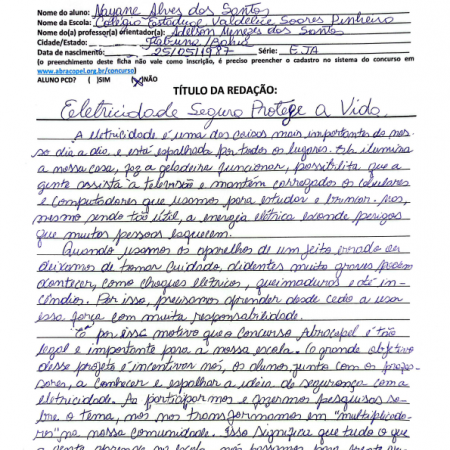 Nome do aluno: Nayane Alves dos Santos
Nome da Escola: Colégio Estadual Valdelice Soares Pinheiro
Nome do(a) professor(a) orientador(a): Adelson Menezes dos Santos
Cidade/Estado: Itabuna/Bahia
Data de nascimento: 25/05/1987 Série: EJA
(o preenchimento deste ficha não vale como inscrição, é preciso preencher o cadastro no sistema do concurso em
www.abracopel.org.br/concurso)
ALUNO PCD? ( )SIM (X)NÃO
TÍTULO DA REDAÇÃO:
Eletricidade Segura Protege a Vida.
A eletricidade é uma das coisas mais importante do nos-
so dia a dia, e está espalhada por todos os lugares. Ela ilumina
a nossa casa, faz a geladeira funcionar, possibilita que a
gente assista a televisão e mantém carregados os celulares
e computadores que usamos para estudar e brincar. Mas,
mesmo sendo tão útil, a energia elétrica esconde perigos
que muitas pessoas esquecem.
Quando usamos os aparelhos de um jeito errado ou
deixamos de tomar cuidado, acidentes muito graves podem
acontecer, como choques elétricos, queimaduras e até in-
cêndios. Por isso, precisamos aprender desde cedo a usar
essa força com muita responsabilidade.
É por esse motivo que o Concurso Abracopel é tão
legal e importante para a nossa escola. O grande objetivo
desse projeto é incentivar nós, os alunos, junto com os profes-
sores, a conhecer e espalhar a ideia de segurança com a
eletricidade. Ao participarmos e fazermos pesquisas so-
bre o tema, nós nos transformamos em "multiplicado-
res" na nossa comunidade. Isso significa que tudo o que